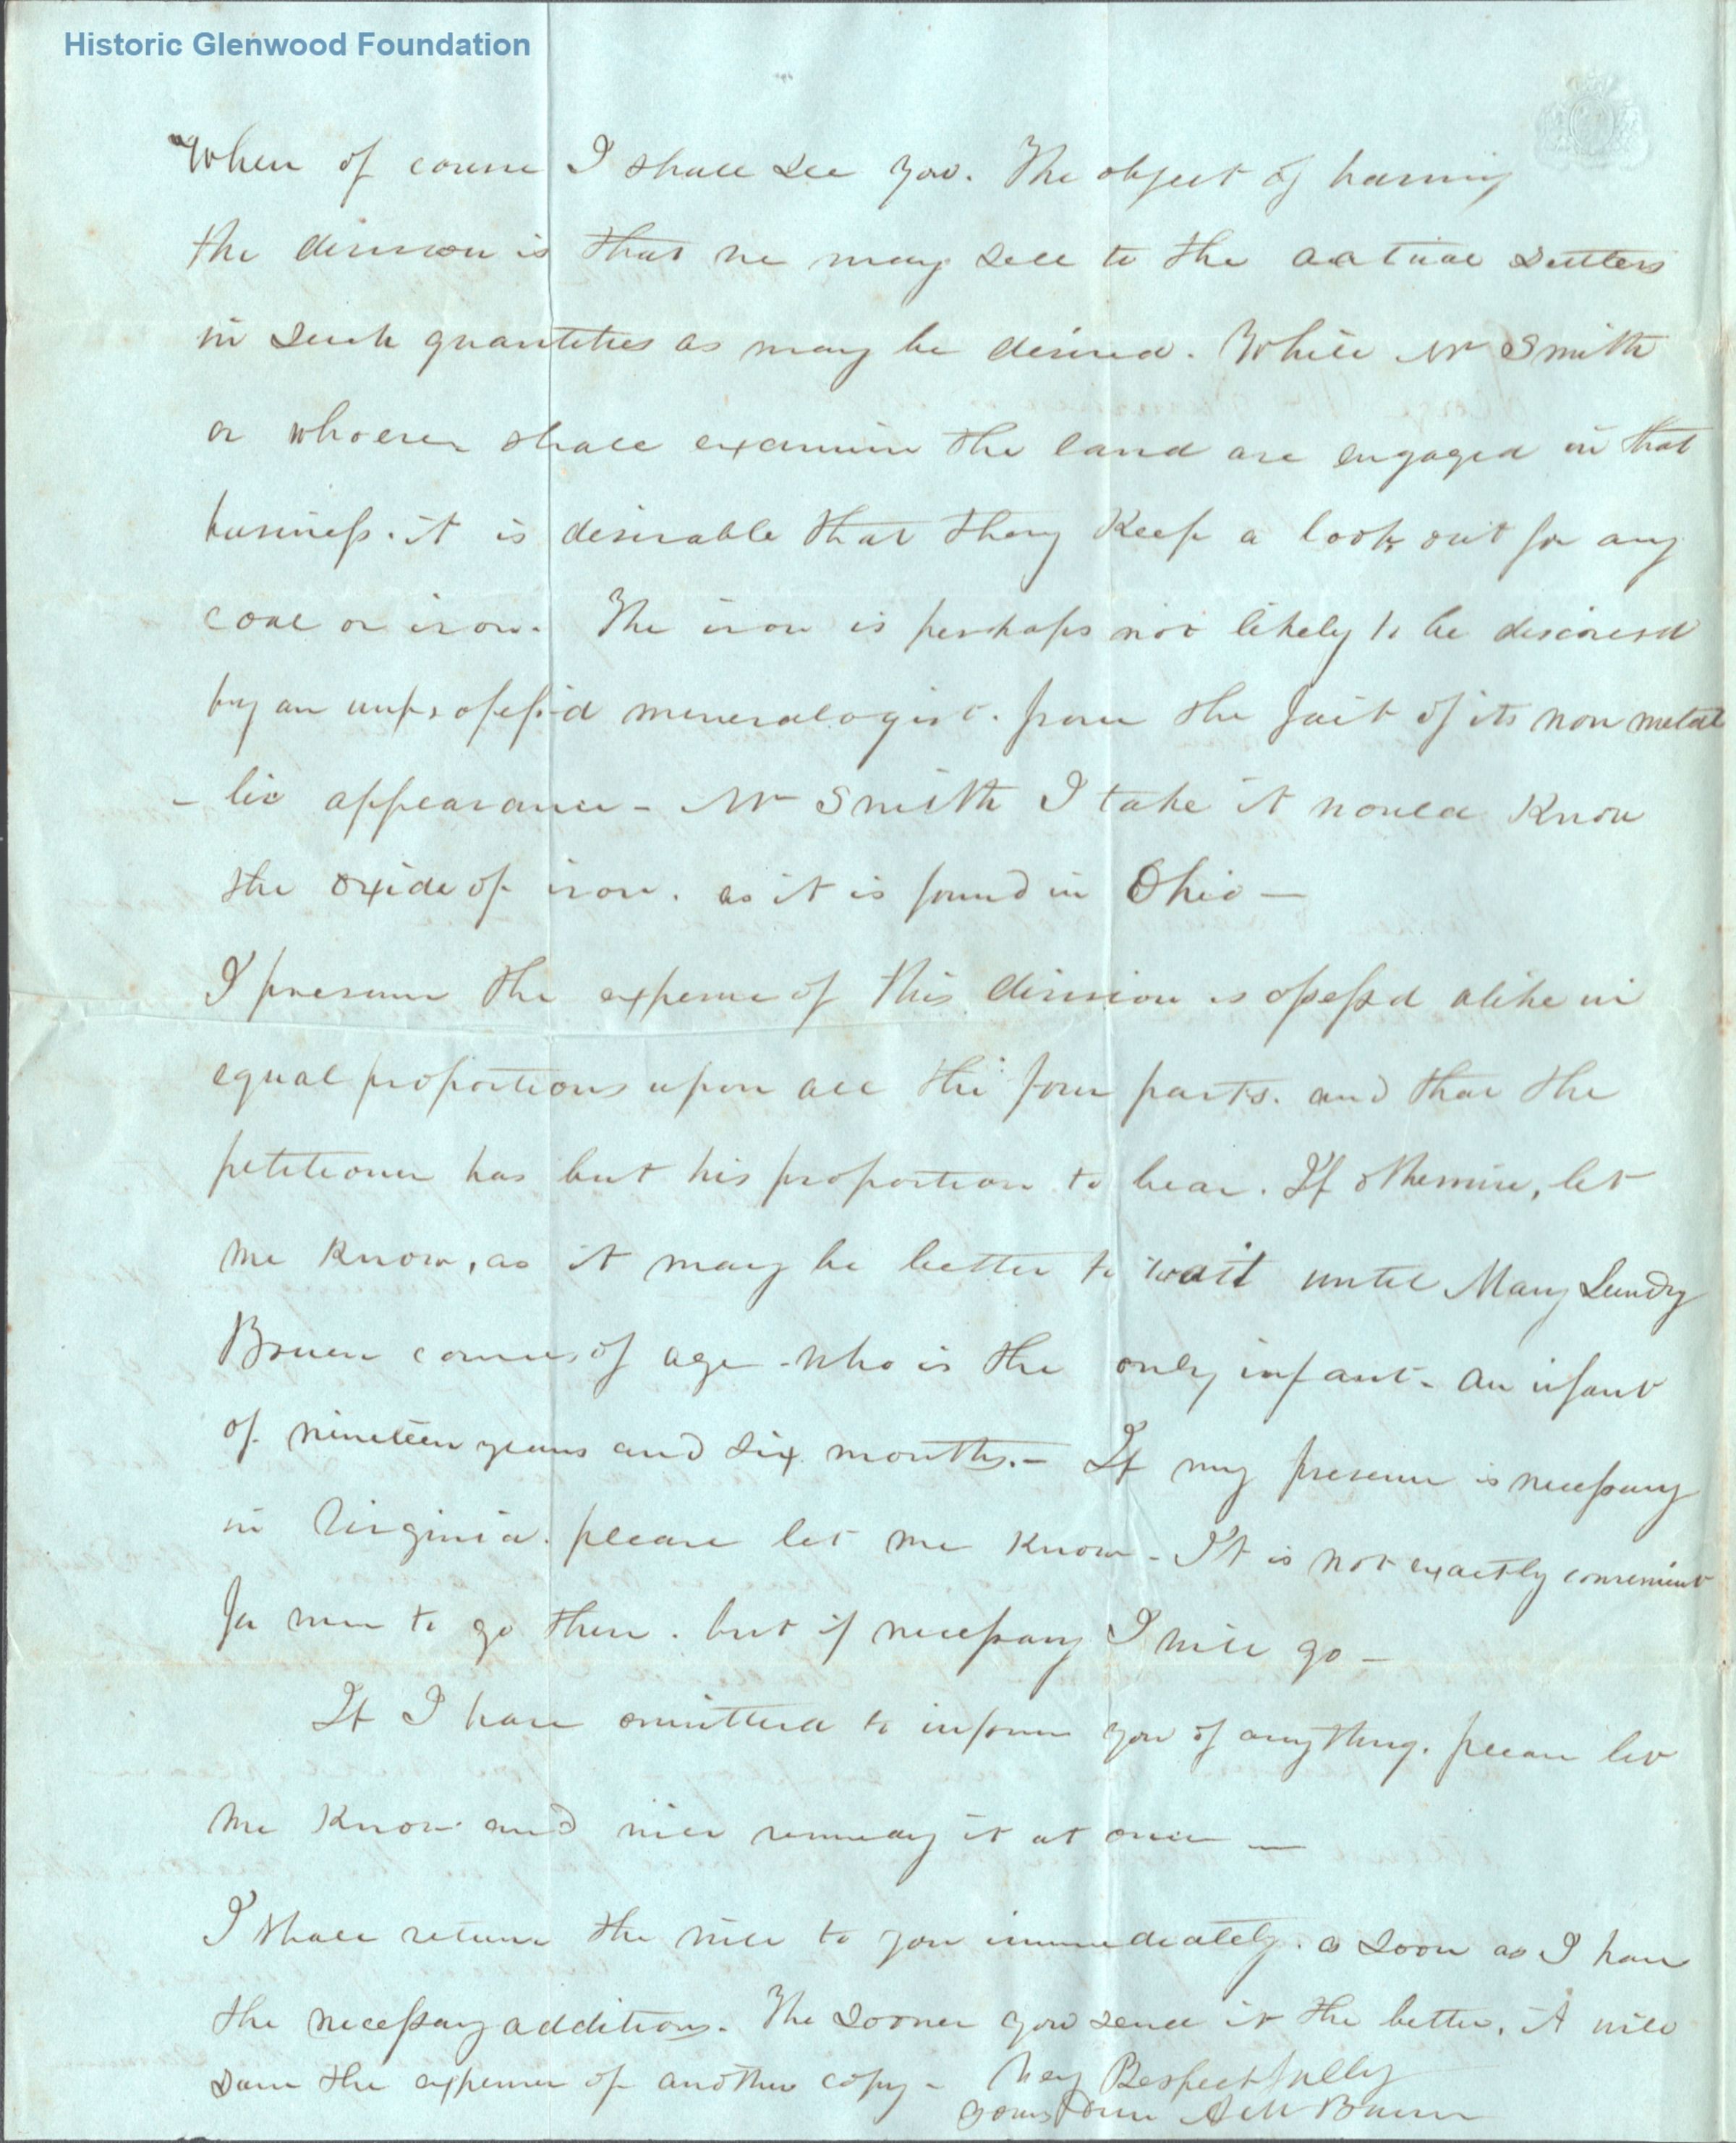 Historic Glenwood Foundation
When of course I shall see you. The object of having
the division is that we may sell to the actual settlers
in such quantities as may be desired. While Mr Smith
or whoever shall examine the land are engaged in that
business. it is desirable that they keep a look out for any
coal or iron. The iron is perhaps not likely to be discoverd
by an unprofess'd mineralogist. from the fact of its non metal
- lic appearance - Mr Smith I take it would know
the oxide of iron. as it is found in Ohio —
I presume the expense of this division is assess'd alike in
equal proportions upon all the four parts. and that the
petitioner has but his proportion to bear. If otherwise, let
me know, as it may be better to wait until Mary Lundy
Bruen comes of age - who is the only infant - an infant
of nineteen years and six months. - If my presence is necessary
in Virginia. please let me know - It is not exactly convenient
for me to go there. but if necessary I will go —
If I have omitted to inform you of anything. please let
me know and will remedy it at once —
I shall return the will to you immediately. as soon as I have
the necessary additions. The sooner you send it the better, it will
save the expense of another copy - Very Respectfully
Yours A M Bruen